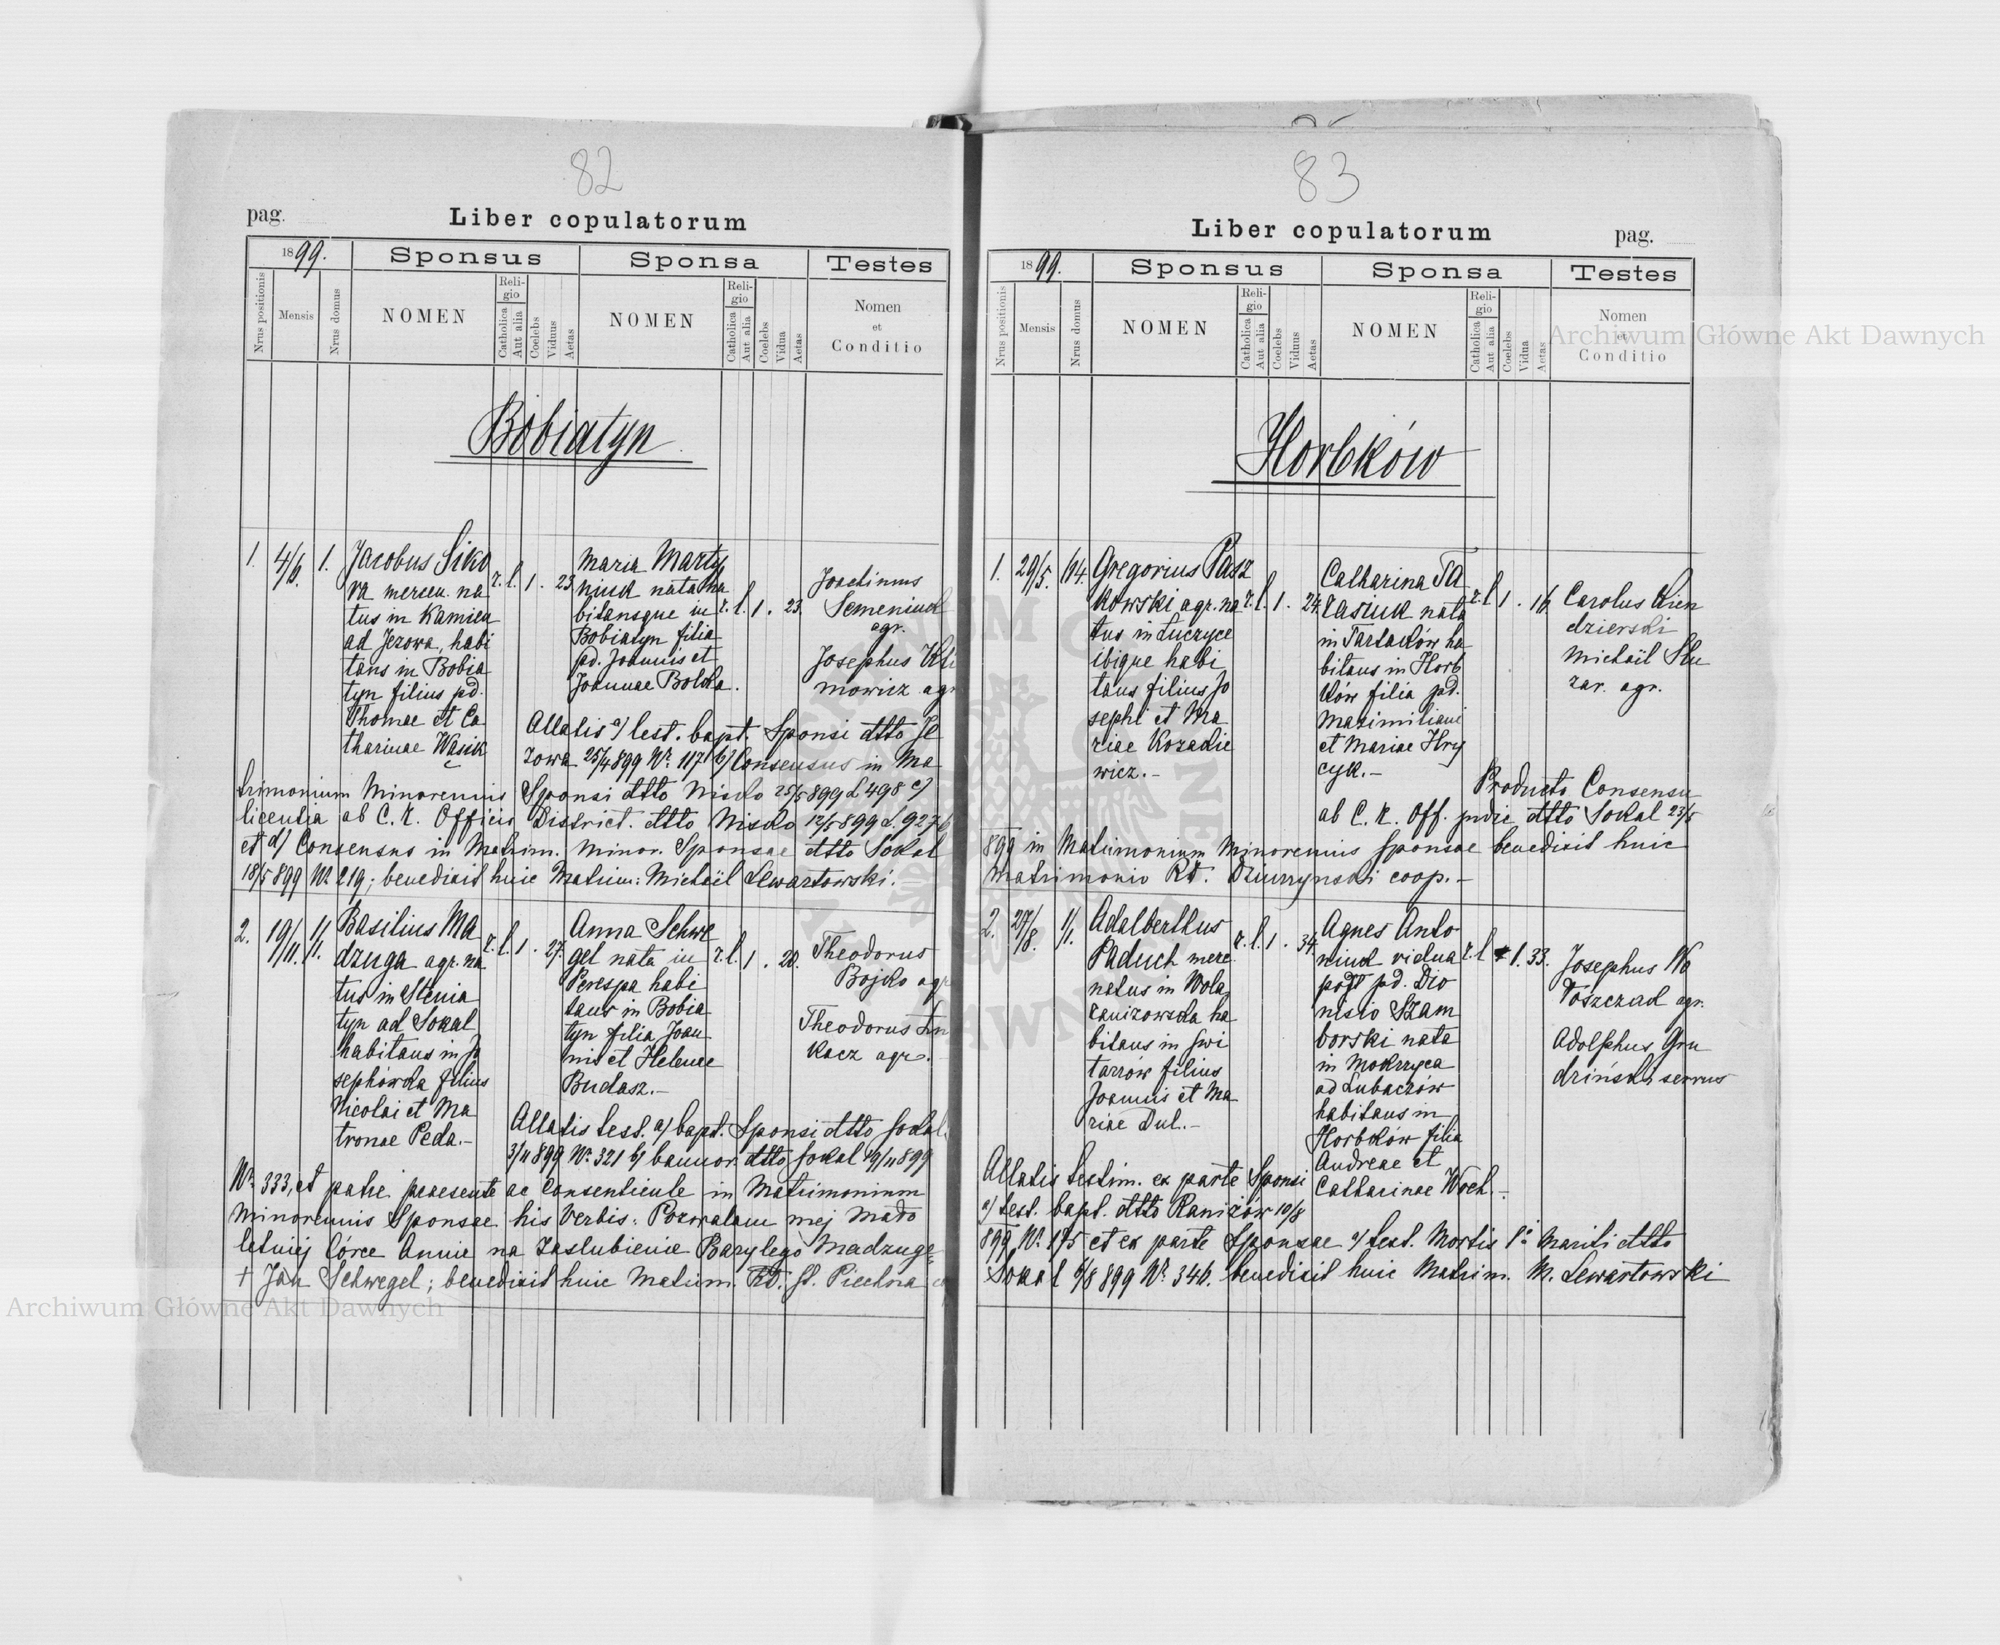 82
pag.
Liber copulatorum
1899.
Sponsus
Sponsa
Testes
Nrus positionis
Mensis
Nrus domus
NOMEN
Religio
Catholica
Aut alia
Coelebs
Viduus
Aetas
NOMEN
Religio
Catholica
Aut alia
Coelebs
Vidua
Aetas
Nomen
et
Conditio
Bobiatyn
1. 4/6. 1. Jacobus Siko
ra mercen. na
tus in Kamien
ad Jezowa, habi
tans in Bobia
tyn filius pd.
Thomae et Ca
tharinae Wąsik
r. l. 1. 23
Maria Marty
niuk nata ha
bitansque in
Bobiatyn filia
pd. Joannis et
Joannae Bolcka.
r. l. 1. 23.
Joachimus
Semeniuk
agr.
Josephus Kli
mowicz agr
Allatis a) test. bapt. Sponsi dtto Je
zowa 25/4 899 Nr. 117 b) Consensus in Ma
trimonium Minorennis Sponsi dtto Nisko 25/5 899 L 498 c)
licentia ab C. R. Officio District. dtto Nisko 12/5 899 L. 9276
et d) Consensus in Matrim. Minor. Sponsae dtto Sokal
18/5 899 Nr 219; benedixit huic Matrim: Michaël Lewartowski.
2. 19/11. 11/1. Basilius Ma
dzuga agr. na
tus in Stenia
tyn ad Sokal
habitans in Jo
sephówka filius
Nicolai et Ma
tronae Peda.-
r. l. 1. 27.
Anna Schwe
gel nata in
Perespa habi
tans in Bobia
tyn filia Joan
nis et Helenae
Budasz.-
r. l. 1. 20.
Theodorus
Bojko agr
Theodorus
kacz agr.
Allatis test. a) bapt. Sponsi dtto Sokal
3/11 899 Nr. 321 b) bannor. dtto Sokal 19/11 899
Nr. 333, et patre praesente ac Consentiente in Matrimonium
Minorennis Sponsae his verbis: Pozwalam mej mało
letniej Córce Annie na Zaslubienie Bazylego Madzugę
+ Jan Schwegel; benedixit huic Matrim. Rd. St. Piechora
83
Liber copulatorum
pag.
1899.
Sponsus
Sponsa
Testes
Nrus positionis
Mensis
Nrus domus
NOMEN
Religio
Catholica
Aut alia
Coelebs
Viduus
Aetas
NOMEN
Religio
Catholica
Aut alia
Coelebs
Vidua
Aetas
Nomen
et
Conditio
Horbków
1. 29/5. 194. Gregorius Pasz
kowski agr. na
tus in Łuczyce
ibique habi
tans filius Jo
sephi et Ma
riae Kozakie
wicz.-
r. l. 1. 24.
Catharina Ta
rasiuk nata
in Tartaków ha
bitans in Horb
ków filia pd.
Maximiliani
et Mariae Hry
cyk.-
r. l. 1. 16
Carolus Kien
dzierski
Michaël Slu
zar. agr.
Producto Consensu
ab C. R. Off. judic dtto Sokal 23/5
899 in Matrimonium Minorennis Sponsae benedixit huic
Matrimonio Rd. Dziurzynski coop.-
2. 27/8. 1/1. Adalberthus
Paduch merc.
natus in Wola
ranizowska ha
bitans in Swi
tarzów filius
Joannis et Ma
riae Dul.-
r. l. 1. 34.
Agnes Anto
niuk vidua
post pd. Dio
nisio Szam
borski nata
in Mokrzyca
ad Lubaczów
habitans in
Horbków filia
Andreae et
Catharinae Woch.-
r. l. 1. 33.
Josephus Wo
toszczad agr.
Adolphus Gru
dziński servus
Allatis testim. ex parte Sponsi
a) test. bapt. dtto Raniżów 10/8
899 Nr. 175 et ex parte Sponsae a) test. Mortis 1i Mariti dtto
Sokal 9/8 899 Nr. 346. benedixit huic Matrim. M. Lewartowski
Archiwum Główne Akt Dawnych
Archiwum Główne Akt Dawnych